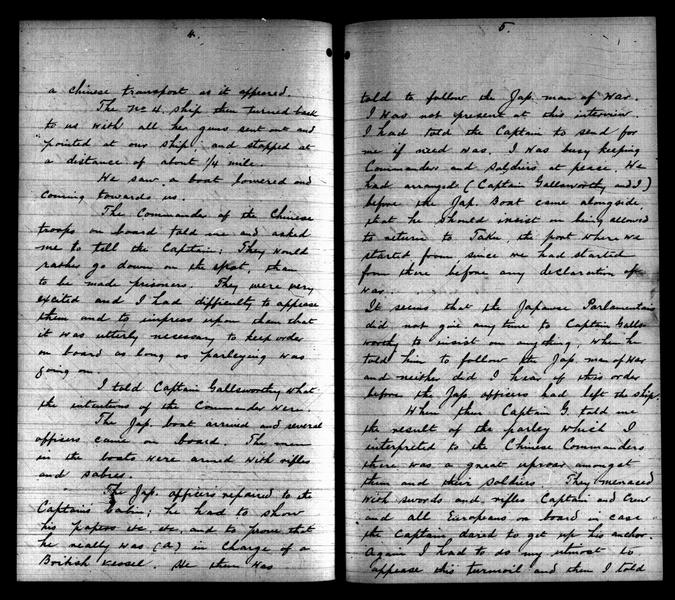 4.
a chinese transport as it appered.
The No 4. ship then turned back
to us with all her guns sent out and
pointed at our ship and stopped at
a distance of about 1/4 mile.
We saw a boat lowered and
coming towards us.
The Commander of the Chinese
troops on board told me and asked
me to tell the Captain; They would
rather go down on the spot, than
to be made prisoners. They were very
excited and I had difficulty to appease
them and to impress upon them that
it was utterly necessary to keep order
on board as long as parleying was
going on.
I told Captain Gallsworthy what
the intentions of the Commander were.
The Jap. boat arrived and several
officers came on board. The men
in the boats were armed with rifles
and sabres.
The Jap. officers repaired to the
Captains Cabin; he had to show
his papers etc. etc. and to prove that
he really was (a) in Charge of a
British vessel. He then was
5.
told to follow the Jap. man of War.
I was not present at this interview.
I had told the Captain to send for
me if need was. I was busy keeping
Commanders and Soldiers at pease. We
had arranged (Captain Gallsworthy and I)
before the Jap. Boat came alongside,
that he should insist on being allowed
to return to Taku, the port where we
started from, since we had started
from there before any declaration of
war.
It seems that the Japanese Parlamentairs
did not give any time to Captain Galls-
worthy to insist on anything, when he
told him to follow the Jap. man of War
and neither did I hear of this order
before the Jap. officers had left the ship.
When then Captain G. told me
the result of the parley which I
interpreted to the Chinese Commanders
there was a great uproar amongst
them and their soldiers. They menaced
with swords and rifles Captain and Crew
and all Europeans on board in case
the Captain dared to get up his anchor.
Again I had to do my utmost to
appease this turmoil and then I told